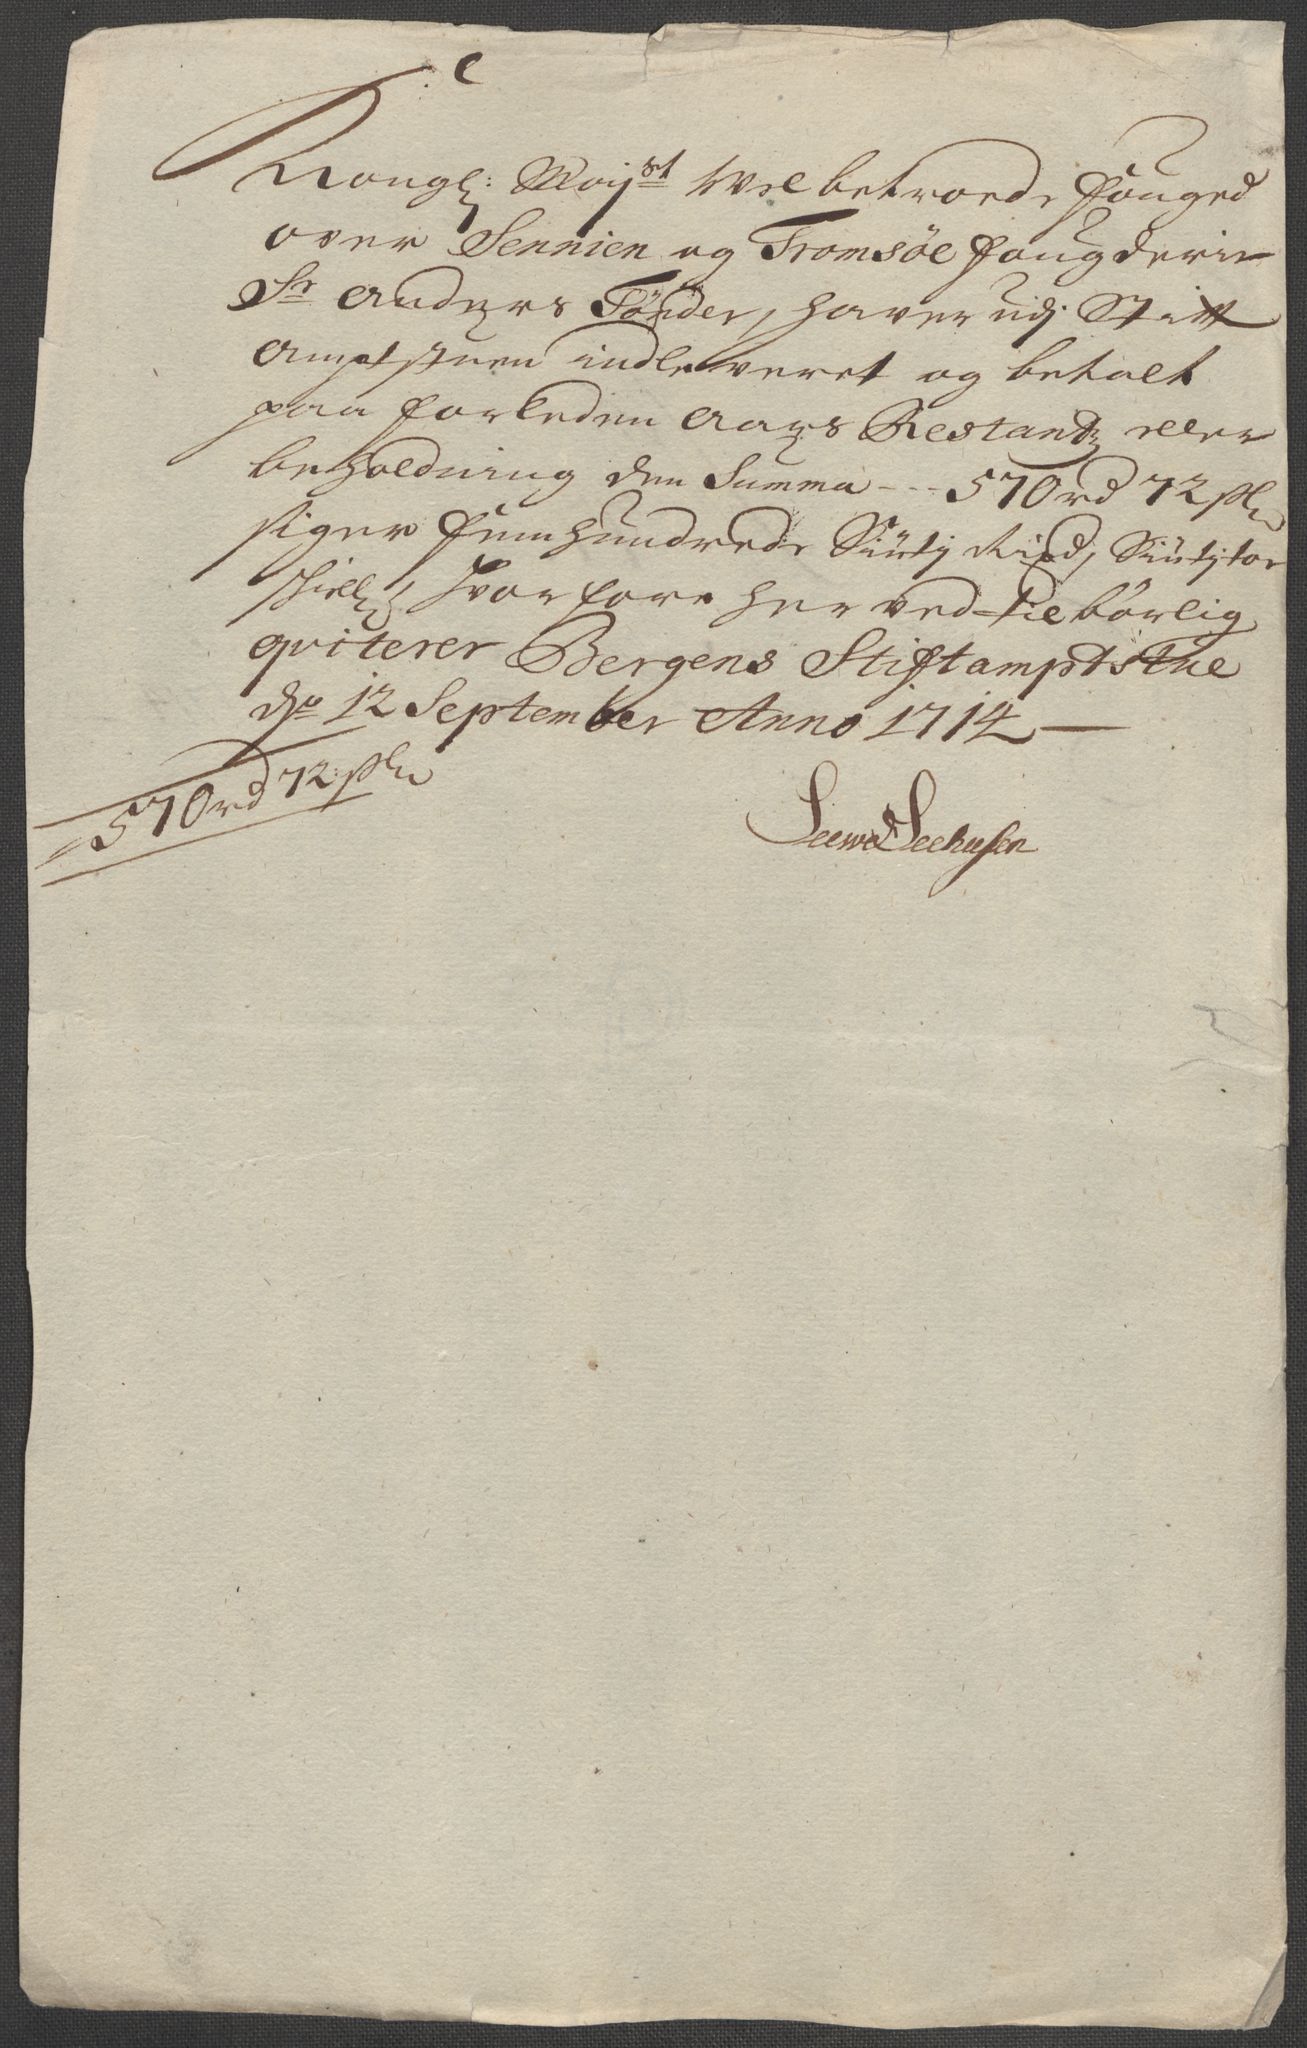 C
Kongl: Mayst Wel betroede fouged
over Sennien og Tromsöe fougderie
Sr Anders Tönder, haver udj Stift
Amptstuen indleveret og betalt
paa forleden Aars Restantz eller
beholdning den Summa --- 570 rd 72 sk
siger femhundrede Siutj Rixd, Siutjtoe
skill, hvorfore her ved tilbörlig
qviterer Bergens Stiftamptstue
dn 12 September Anno 1714
570 rd 72 sk
Seewd Seehusen